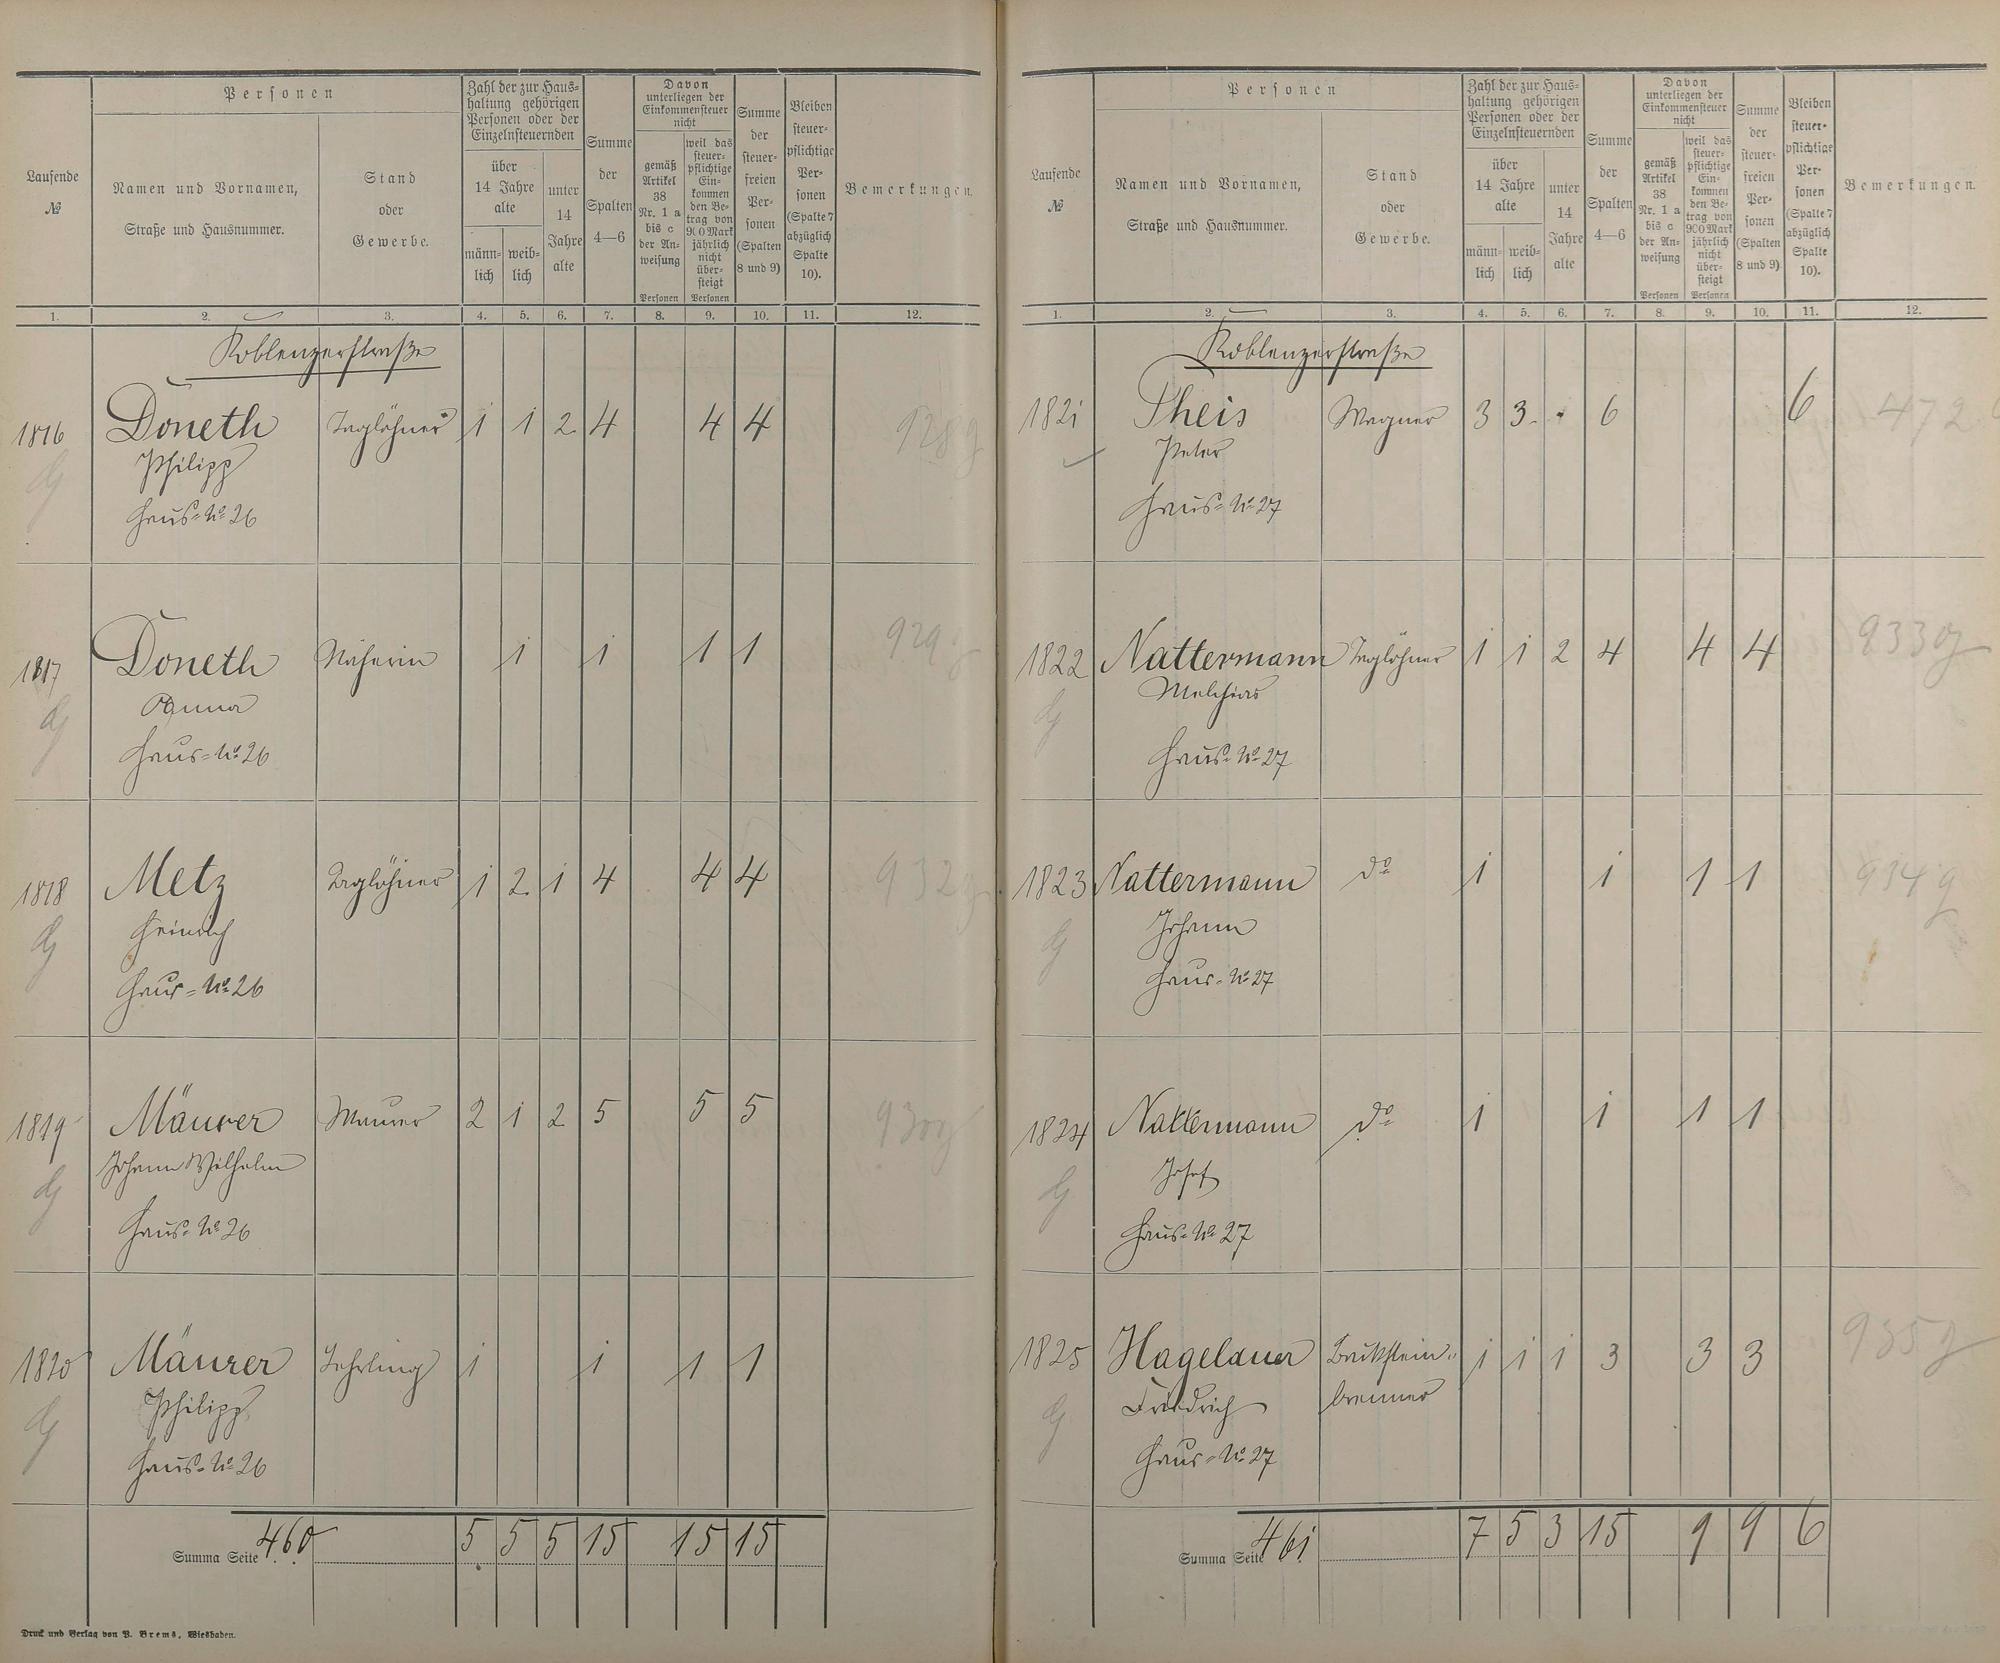 Laufende
№
Personen
Namen und Vornamen,
Straße und Hausnummer.
Stand
oder
Gewerbe.
Zahl der zur Haus-
haltung gehörigen
Personen oder der
Einzelnsteuernden
über
14 Jahre
alte
männ-
lich
weib-
lich
unter
14
Jahre
alte
Summe
der
Spalten
4—6
Davon
unterliegen der
Einkommensteuer
nicht
gemäß
Artikel
38
Nr. 1 a
bis c
der An-
weisung
Personen
weil das
steuer-
pflichtige
Ein-
kommen
den Be-
trag von
900 Mark
jährlich
nicht
über-
steigt
Personen
Summe
der
steuer-
freien
Per-
sonen
(Spalten
8 und 9)
Bleiben
steuer-
pflichtige
Per-
sonen
(Spalte 7
abzüglich
Spalte
10).
Bemerkungen.
1. 2. 3. 4. 5. 6. 7. 8. 9. 10. 11. 12.
Koblenzerstraße
1816 Doneth Taglöhner 1 1 2 4 4 4 928 g
Philipp
Haus-No 26
1817 Doneth Näherin 1 1 1 1 929 g
Anna
Haus-No 26
1818 Metz Taglöhner 1 2 1 4 4 4 932 g
Heinrich
Haus-No 26
1819 Mäurer Maurer 2 1 2 5 5 5 930 g
Johann Wilhelm
Haus-No 26
1820 Mäurer Lehrling 1 1 1 1
Philipp
Haus-No 26
Summa Seite 460 5 5 5 15 15 15
Druck und Verlag von P. Brems, Wiesbaden.
Laufende
№
Personen
Namen und Vornamen,
Straße und Hausnummer.
Stand
oder
Gewerbe.
Zahl der zur Haus-
haltung gehörigen
Personen oder der
Einzelnsteuernden
über
14 Jahre
alte
männ-
lich
weib-
lich
unter
14
Jahre
alte
Summe
der
Spalten
4—6
Davon
unterliegen der
Einkommensteuer
nicht
gemäß
Artikel
38
Nr. 1 a
bis c
der An-
weisung
Personen
weil das
steuer-
pflichtige
Ein-
kommen
den Be-
trag von
900 Mark
jährlich
nicht
über-
steigt
Personen
Summe
der
steuer-
freien
Per-
sonen
(Spalten
8 und 9)
Bleiben
steuer-
pflichtige
Per-
sonen
(Spalte 7
abzüglich
Spalte
10).
Bemerkungen.
1. 2. 3. 4. 5. 6. 7. 8. 9. 10. 11. 12.
Koblenzerstraße
1821 Theis Wagner 3 3 . 6 6 472
Peter
Haus-No 27
1822 Nattermann Taglöhner 1 1 2 4 4 4 933 g
Melchior
Haus-No 27
1823 Nattermann do 1 1 1 1 934 g
Johann
Haus-No 27
1824 Nattermann do 1 1 1 1
Josef
Haus-No 27
1825 Hagelauer Backstein- 1 1 1 3 3 3 935 g
Friedrich brenner
Haus-No 27
Summa Seite 461 7 5 3 15 9 9 6